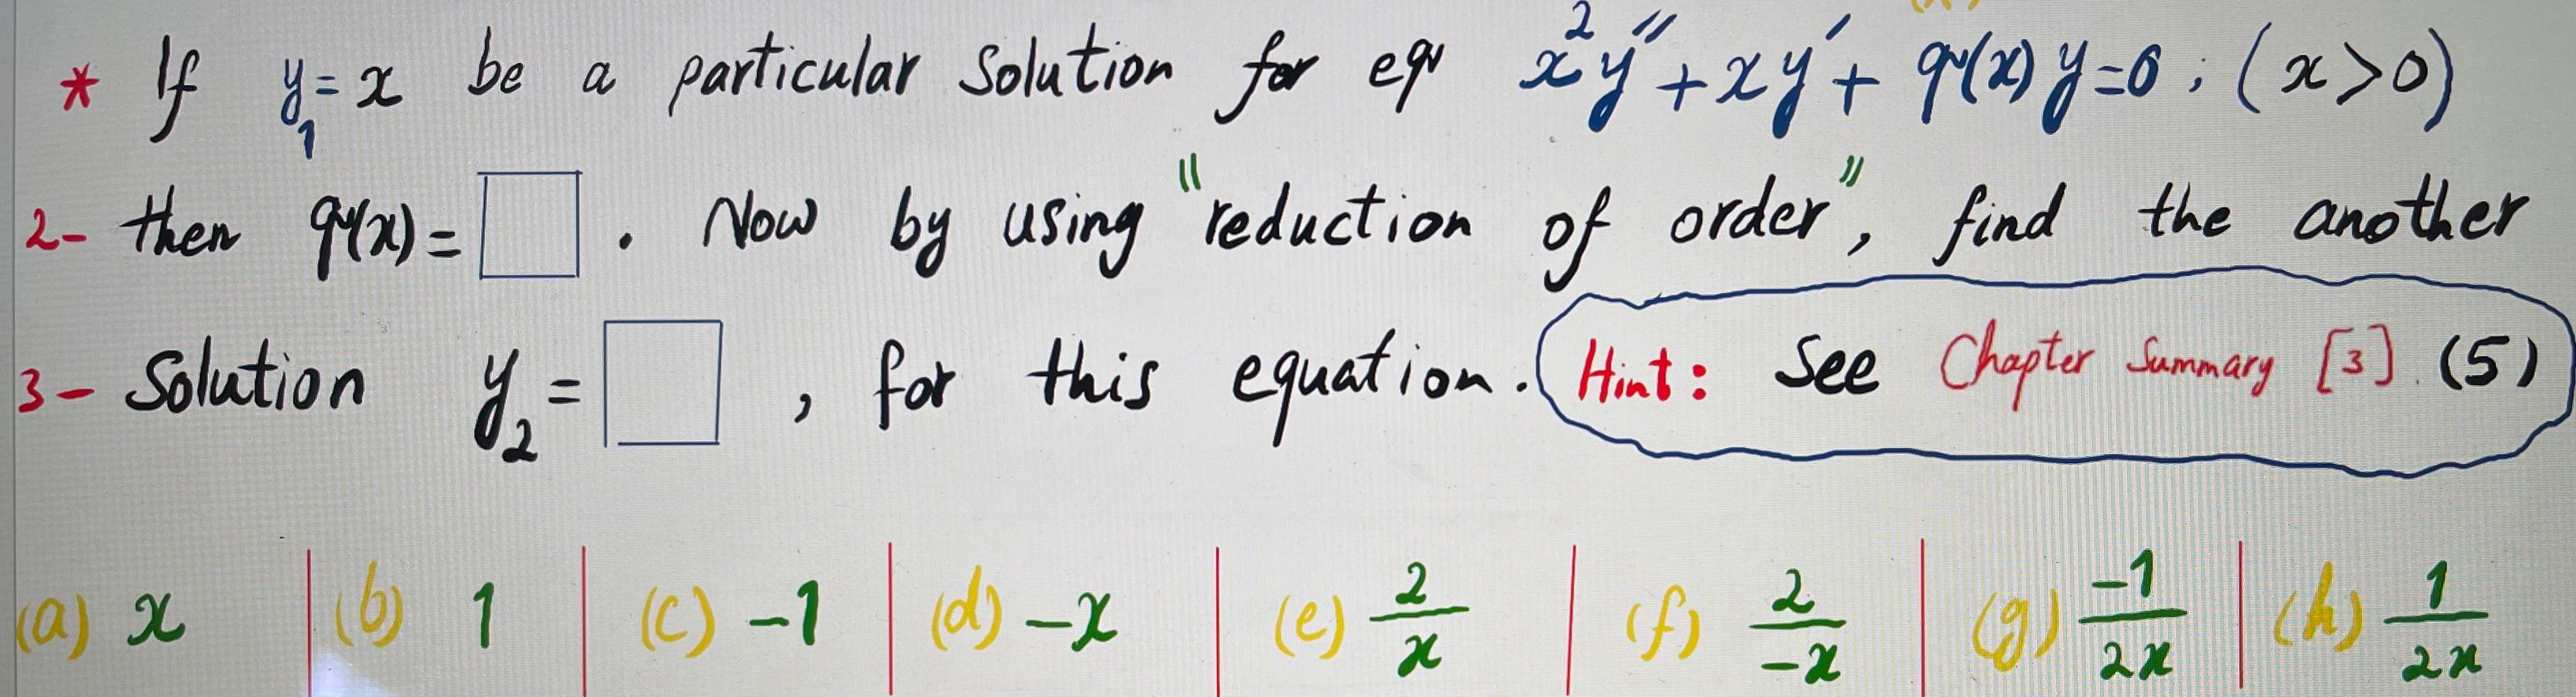 * If y₁ = x be a particular solution for eqn x²y″ + xy′ + q(x)y = 0 ; (x > 0)
2- then q(x) = □ . Now by using "reduction of order", find the another
3- Solution y₂ = □ , for this equation. Hint: See Chapter Summary [3]. (5)
(a) x | (b) 1 | (c) -1 | (d) -x | (e) 2/x | (f) 2/-x | (g) -1/2x | (h) 1/2x